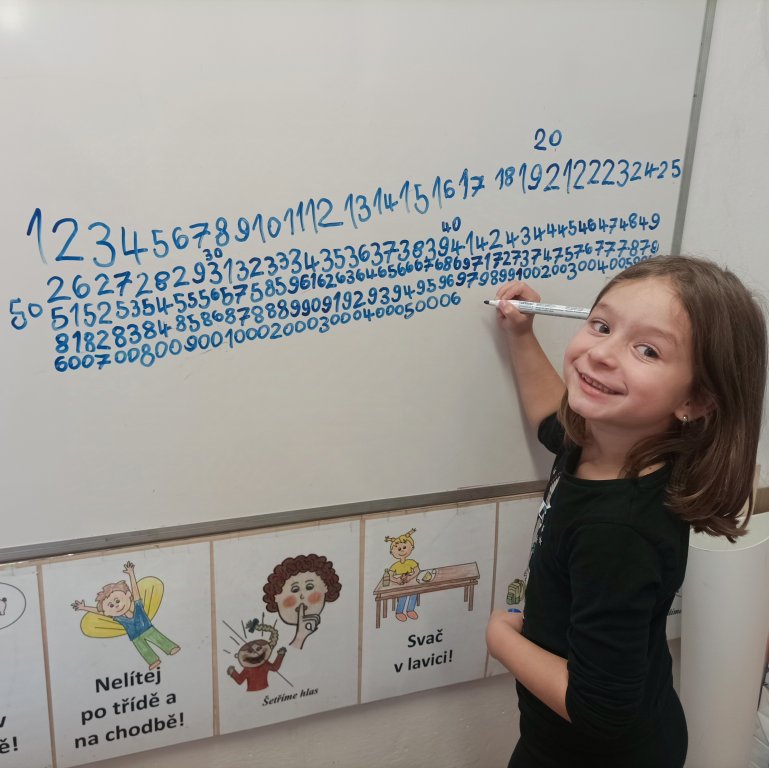 20
1 2 3 4 5 6 7 8 9 10 11 12 13 14 15 16 17 18 19 21 22 23 24 25
30 40
26 27 28 29 31 32 33 34 35 36 37 38 39 41 42 43 44 45 46 47 48 49
50 51 52 53 54 55 56 57 58 59 61 62 63 64 65 66 67 68 69 71 72 73 74 75 76 77 78 79
81 82 83 84 85 86 87 88 89 90 91 92 93 94 95 96 97 98 99 100 200 300 400 500
600 700 800 900 1000 2000 3000 4000 5000 6
Nelítej
po třídě a
na chodbě!
Šetříme hlas
Svač
v lavici!